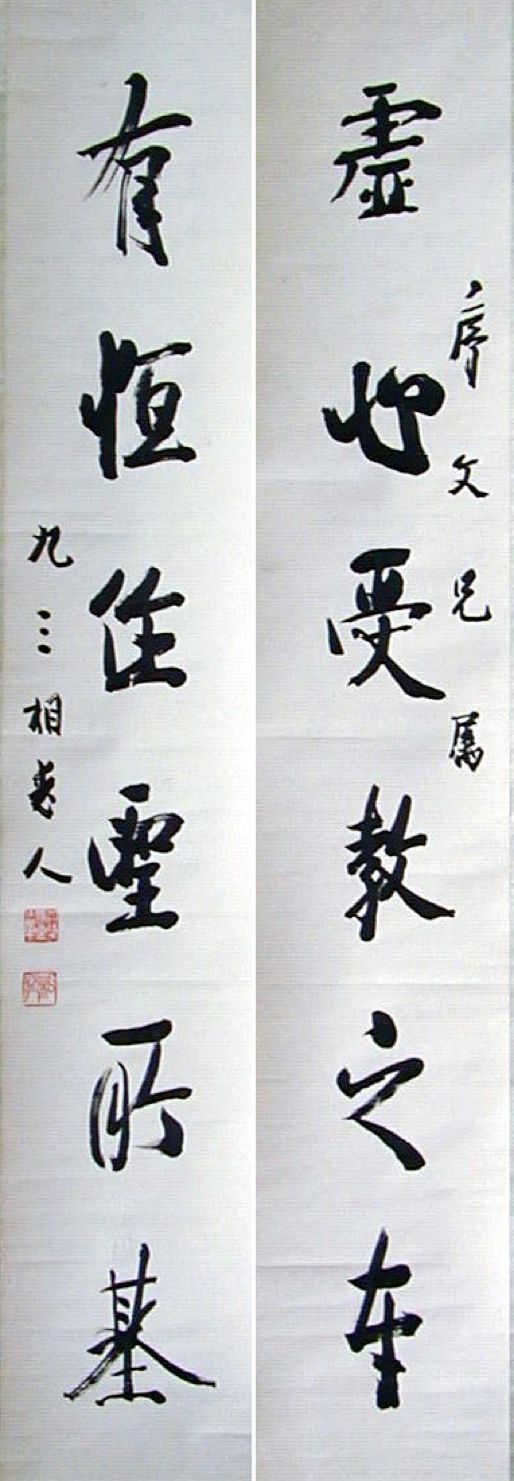 虛心受教之本
序文兄属
有恒作聖所基
九三相老人